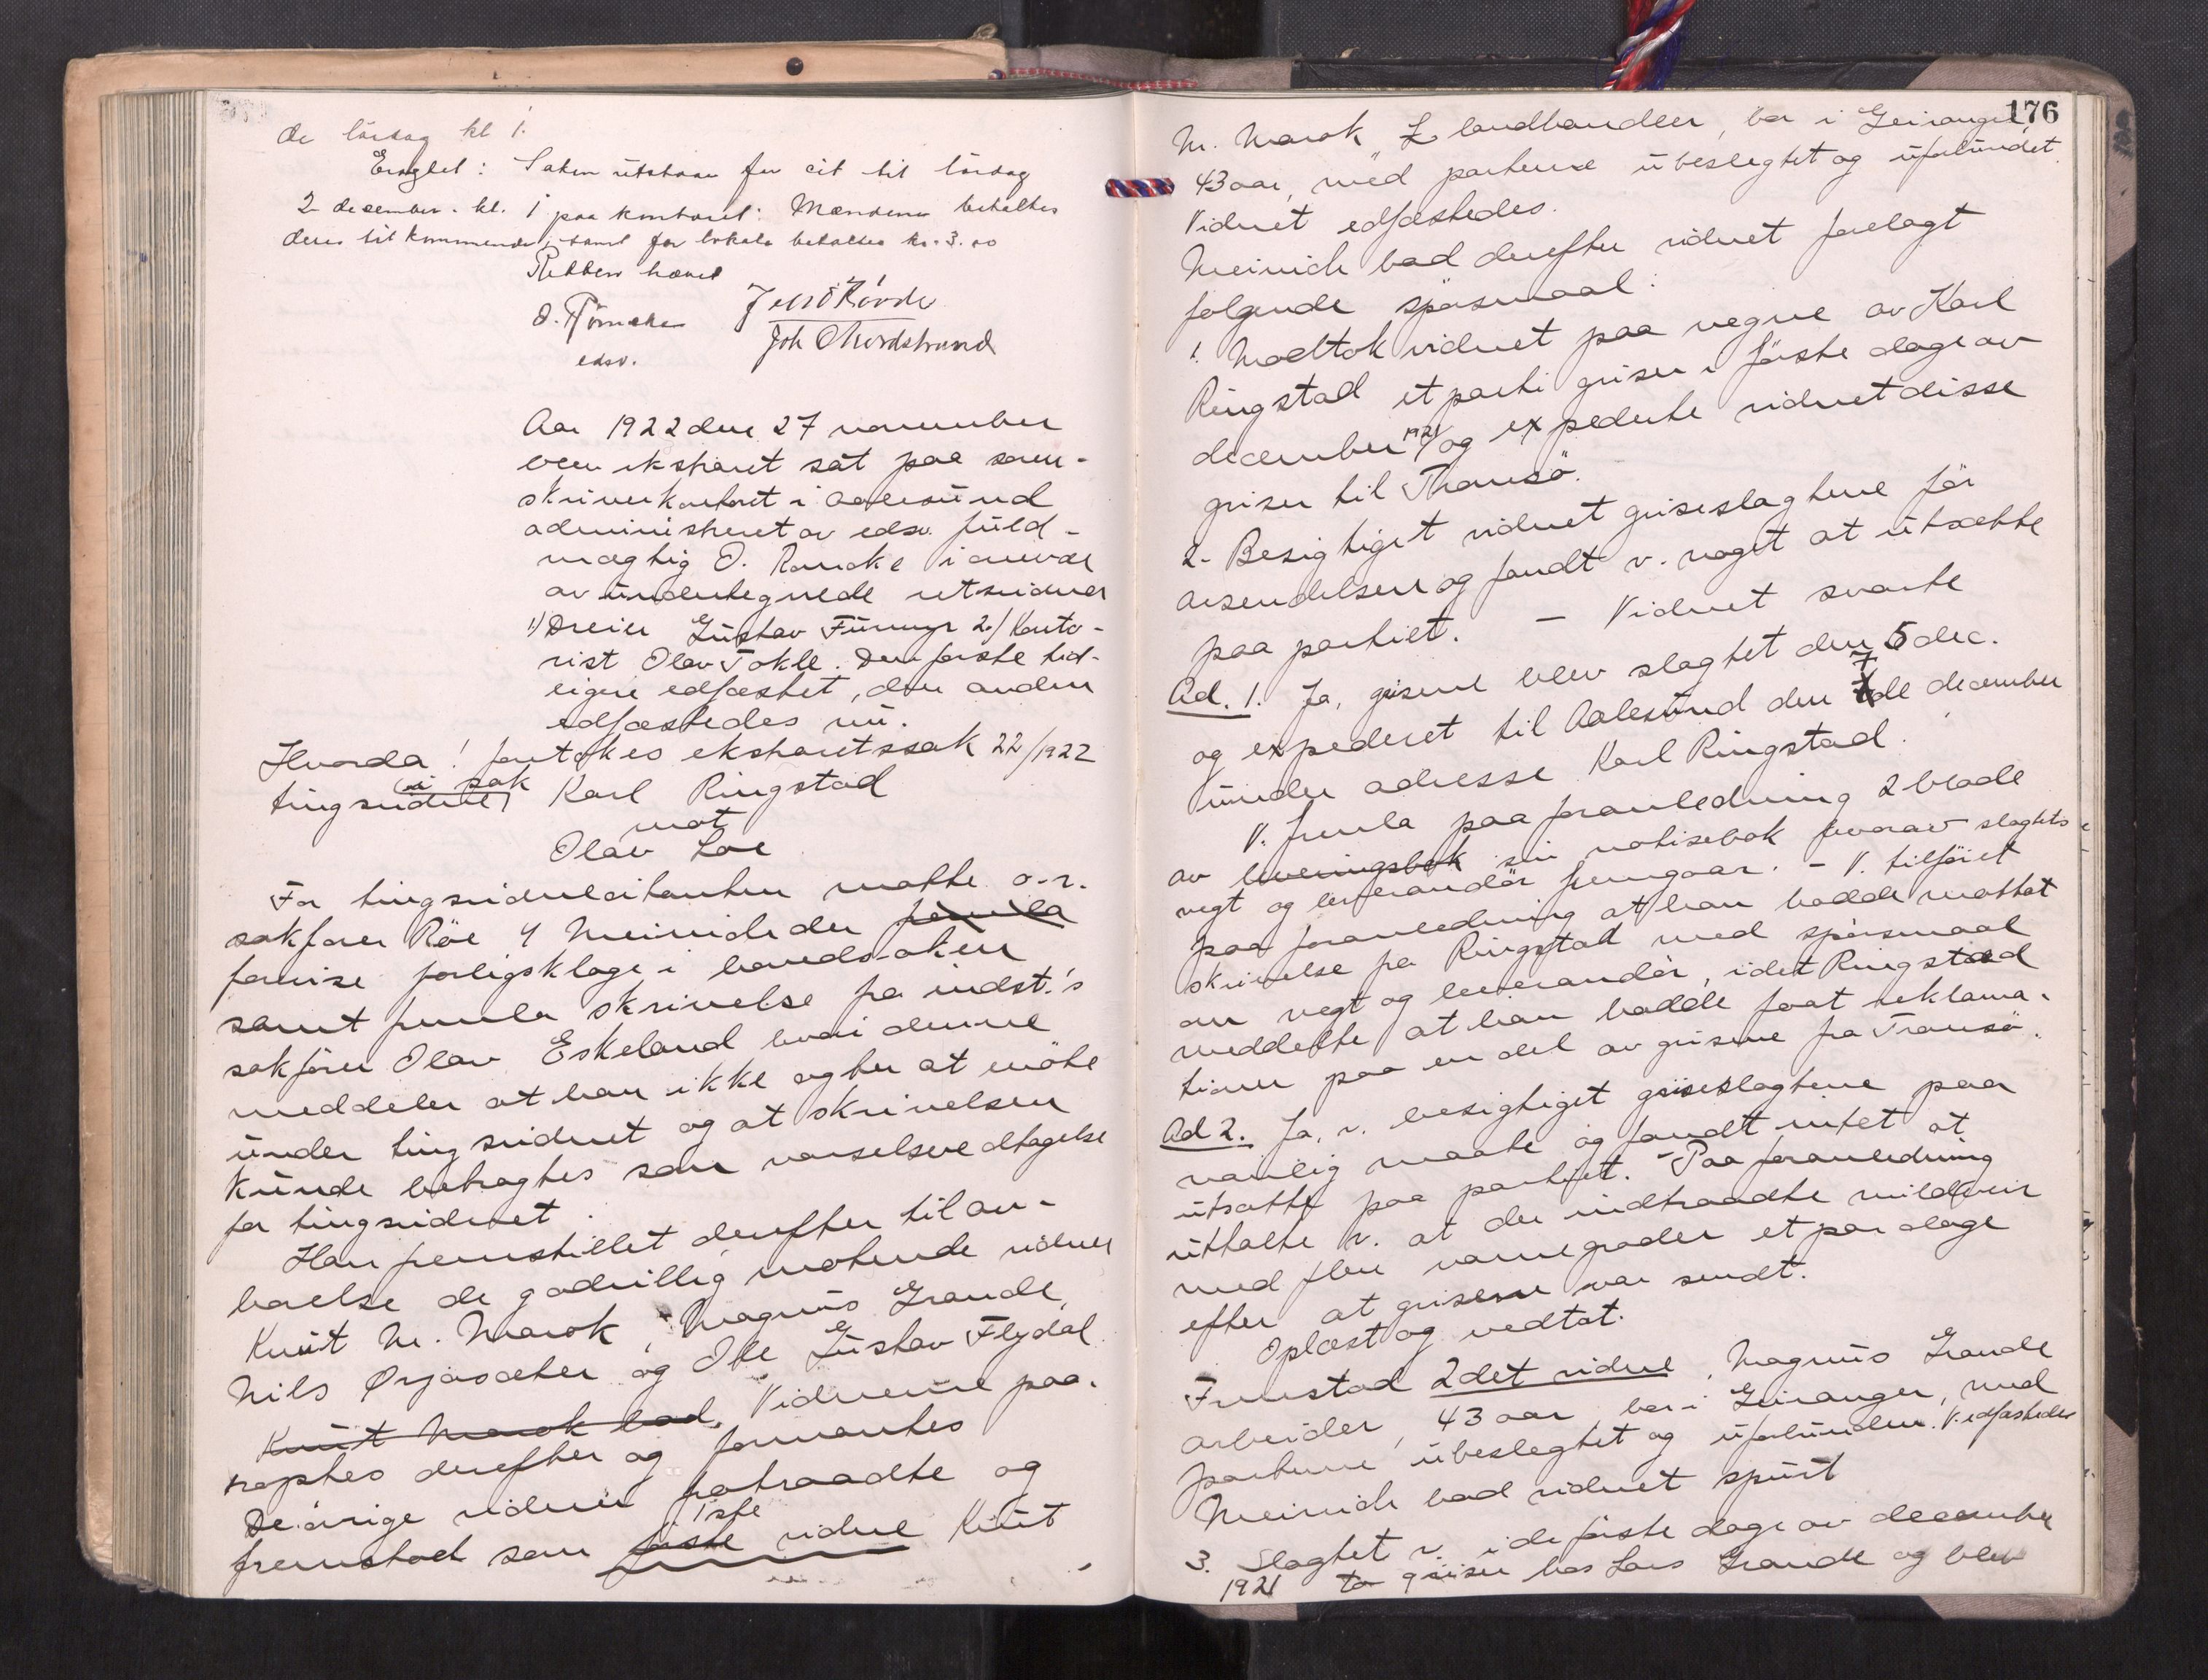 de lörsag kl 1.
Eragtet: Saken utstaar for eit til lörsag
2 desember. kl. 1 paa kontoret. Mændene betaltes
deres tilkommende, samt for lokale betaltes kr. 3.00
Retten hævet
O.
edsv.
Joh Nordstrand
Aar 1922 den 27 november
blev ekstraret sat paa soren-
skriverkontoret i Aalesund
administreret av edsv. fuld-
mægtig O. Rømcke i overvær
av undertegnede retsvidner
1) Dreier Gustav Furmyr 2./ Konto-
rist Olav Tokle. Den første tid-
ligere edfæstet, den anden
edfæstedes nu.
Hvorda! foretokes ekstraretssak 22/1922
tingsvidne i sak Karl Ringstad
mot
Olav Loe
For tingsvidneleitanten møtte o.r.
sakfører Röe & Meinich der fremla
forevise forligsklage i hovedsaken
samt fremla skrivelse fra indst.'s
sakfører Olav Eskeland hvori denne
meddeler at han ikke agter at møte
under tingsvidnet og at skrivelsen
kunde betragtes som varselsvedtagelse
for tingsvidnet.
Han fremstillet derefter til av-
hørelse de godvillig møtende vidner
Knut M. Marok, Magnus Grande,
Nils Ørjasæter og Ole Gustav Flydal.
Knut Marok bad. Vidnerne paa-
roptes derefter og formantes
De övrige vidner fratraadte og
1ste
fremstod som förste vidne Knut
176
M. Marok, landhandler, bor i Geiranger,
43 aar, med parterne ubeslegtet og uforbundet
Vidnet edfæstedes.
Meinich bad derefter vidnet forelagt
følgende spörsmaal:
1. Modtok vidnet paa vegne av Karl
Ringstad et parti griser i förste dage av
december 1921 og expederte vidnet disse
griser til Tromsö.
2. Besigtiget vidnet griseslagtene för
avsendelsen og fandt v. noget at utsætte
paa partiet. — Vidnet svarte
Ad. 1. Ja, grisene blev slagtet den 5 dec.
og expederet til Aalesund den 7de december
under adresse Karl Ringstad.
V. fremla paa foranledning 2 blade
av leveringsbok sin notisebok hvorav slagtets
vegt og leverandör fremgaar. - V. tilföiet
paa foranledning at han hadde mottat
skrivelse fra Ringstad med spörsmaal
om vegt og leverandör, idet Ringstad
meddelte at han hadde faat reklama-
tioner paa en del av grisene fra Tromsö.
Ad 2. Ja, v. besigtiget griseslagtene paa
vanlig maate og fandt intet at
utsætte paa partiet. - Paa foranledning
uttalte v. at der indtraadte mildveir
med flere varmegrader et par dage
efter at grisene var sendt.
Oplæst og vedtat.
Fremstod 2det vidne, Magnus Grande
arbeider, 43 aar bor i Geiranger, med
parterne ubeslegtet og uforbunden. V. edfæstedes
Meinich bad vidnet spurt
3. Slagtet v. i de förste dage av december
1921 to griser hos Lars Grande og blev